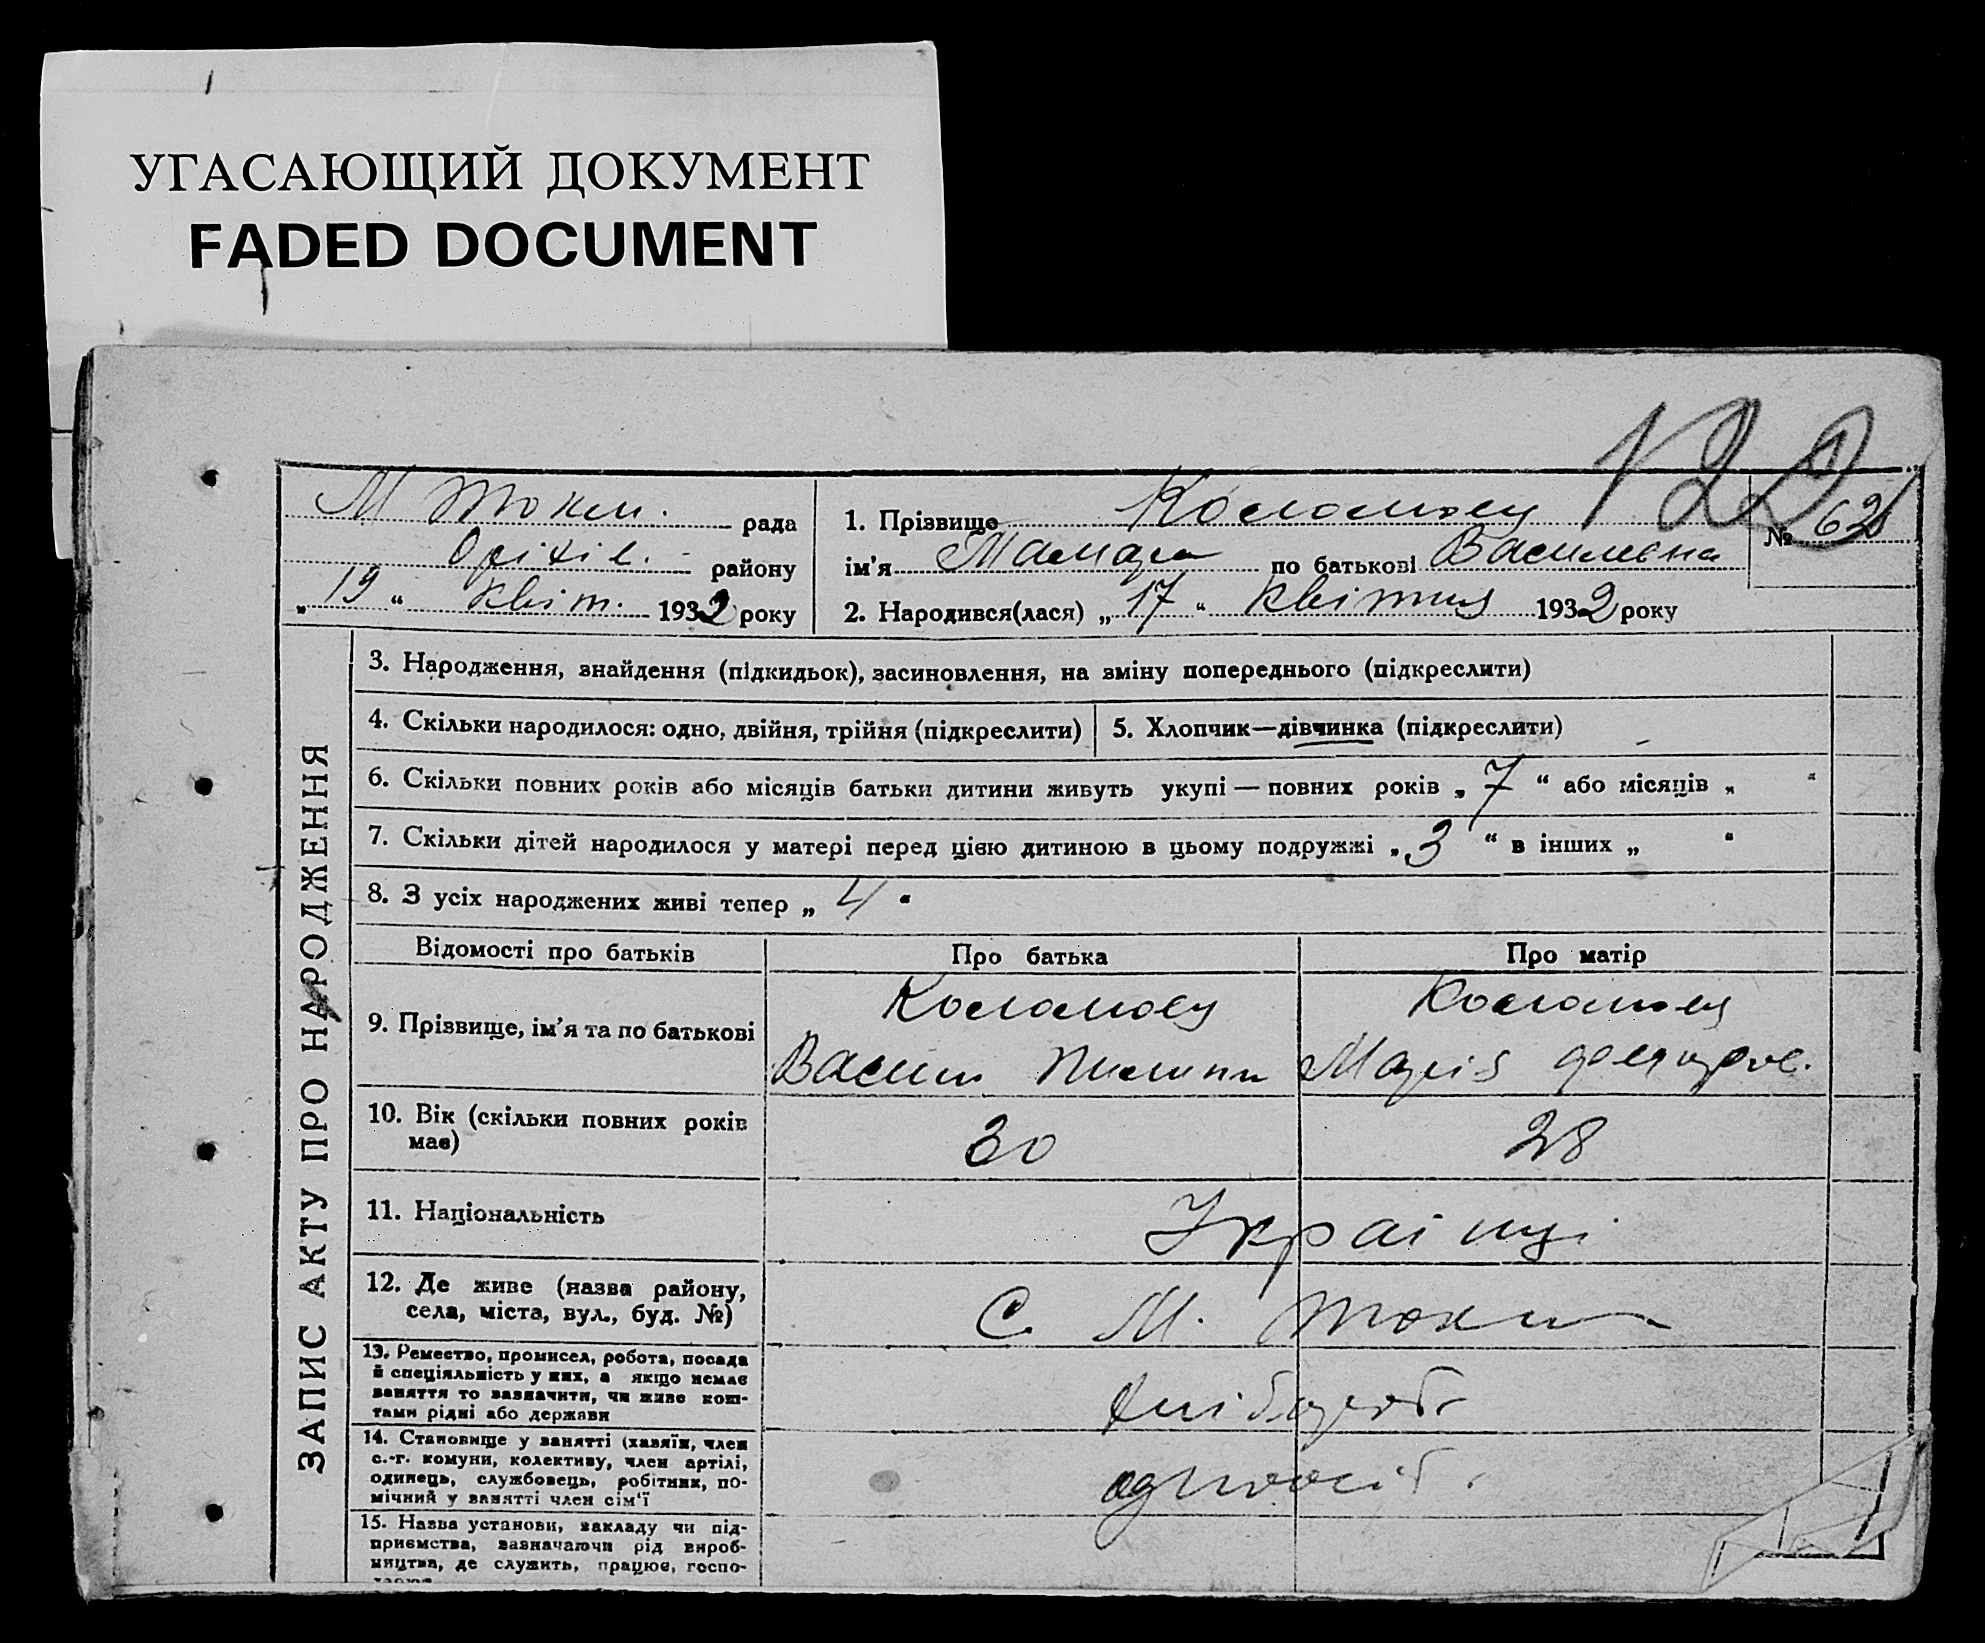 УГАСАЮЩИЙ ДОКУМЕНТ
FADED DOCUMENT
122
М Токм. рада
Оріхів. району
„19“ квіт. 1932 року
1. Прізвище
№ 62
ім’я Тамара по батькові Василевна
2. Народився(лася) „17“ квітня 1932 року
ЗАПИС АКТУ ПРО НАРОДЖЕННЯ
3. Народження, знайдення (підкидьок), засиновлення, на зміну попереднього (підкреслити)
4. Скільки народилося: одно, двійня, трійня (підкреслити)
5. Хлопчик—дівчинка (підкреслити)
6. Скільки повних років або місяців батьки дитини живуть укупі — повних років „7“ або місяців „ “
7. Скільки дітей народилося у матері перед цією дитиною в цьому подружжі „3“ в інших „ “
8. З усіх народжених живі тепер „4“
Відомості про батьків
Про батька
Про матір
9. Прізвище, ім’я та по батькові
Васил
Марія
10. Вік (скільки повних років
має)
30
28
11. Національність
Українці
12. Де живе (назва району,
села, міста, вул., буд. №)
С. М. Токм
13. Ремество, промисел, робота, посада
й спеціяльність у них, а якщо немає
заняття то зазначити, чи живе кош-
тами рідні або держави
хлібороб
14. Становище у занятті (хазяїн, член
с.-г. комуни, колективу, член артілі,
одинець, службовець, робітник, по-
мічний у занятті член сім’ї
одноосіб.
15. Назва установи, закладу чи під-
приємства, зазначаючи рід вироб-
ництва, де служить, працює, госпо-